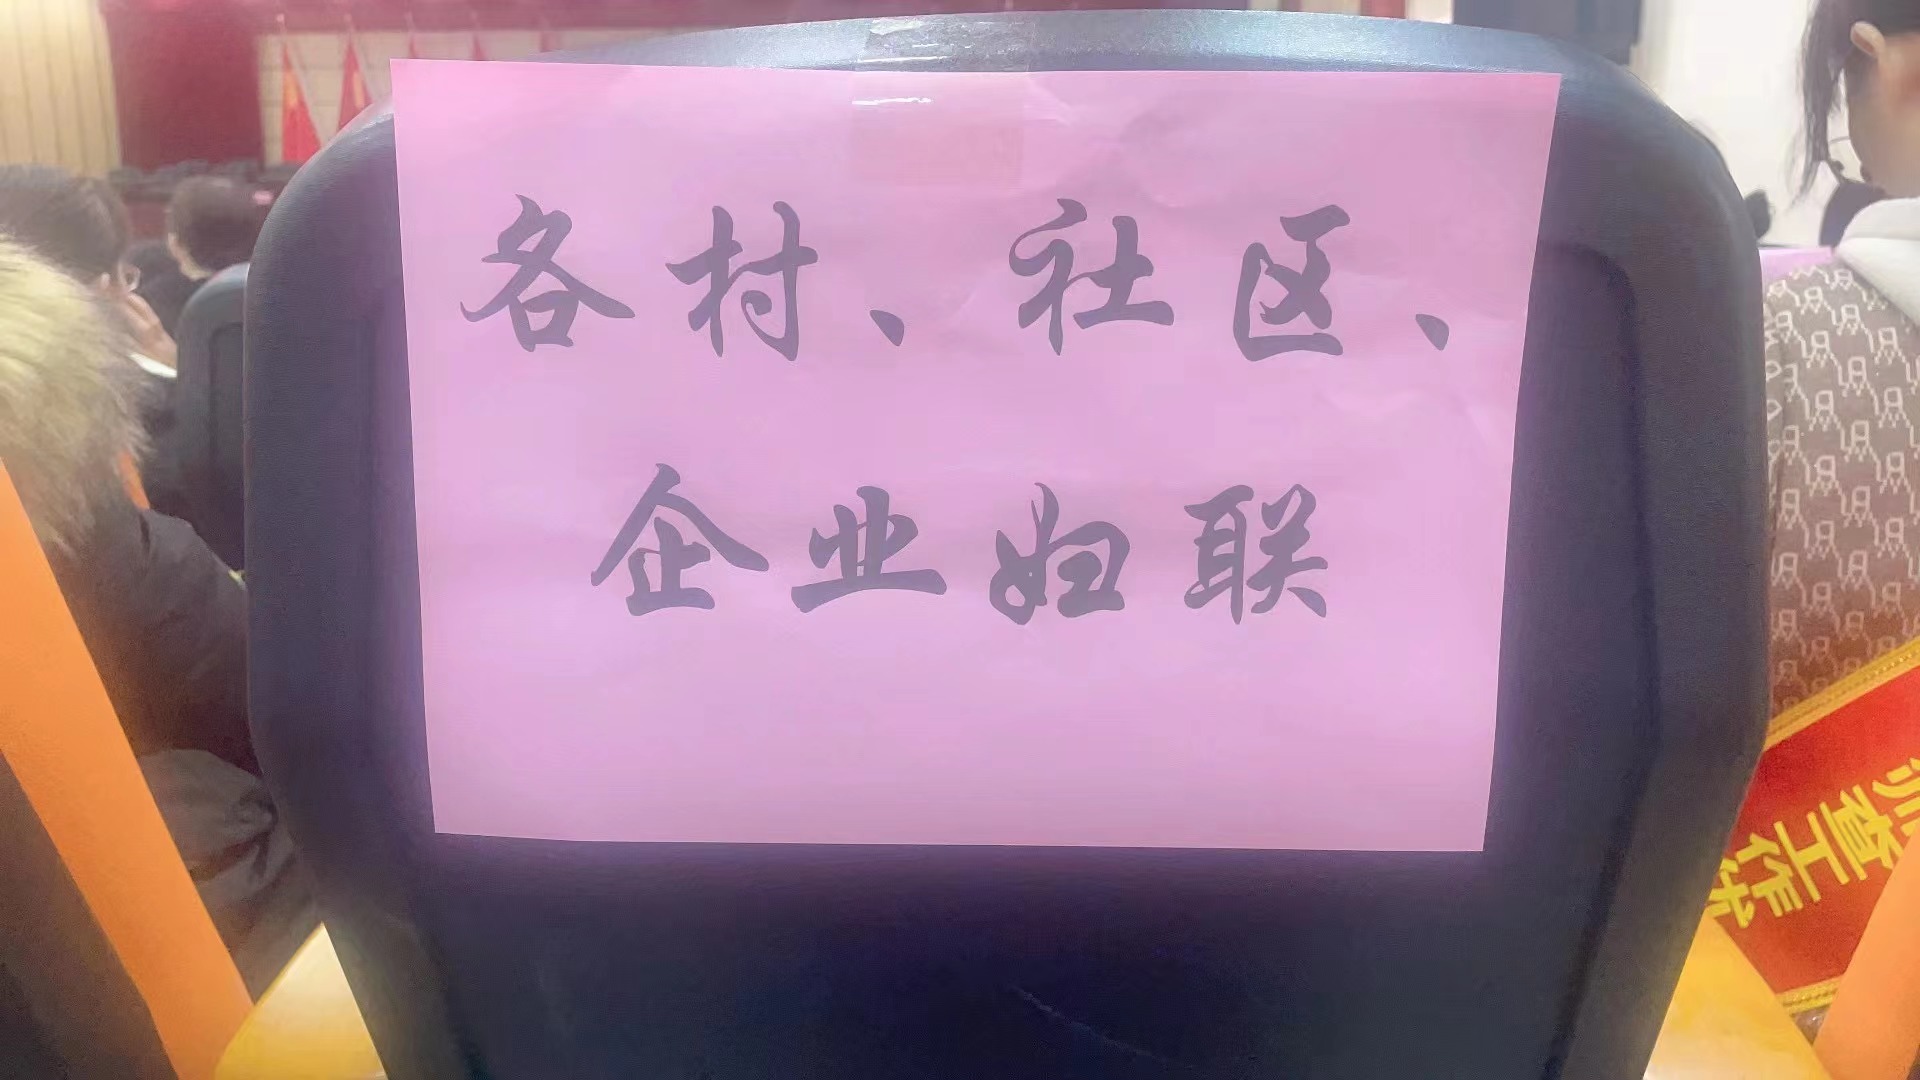 各村、社区、
企业妇联
查工作